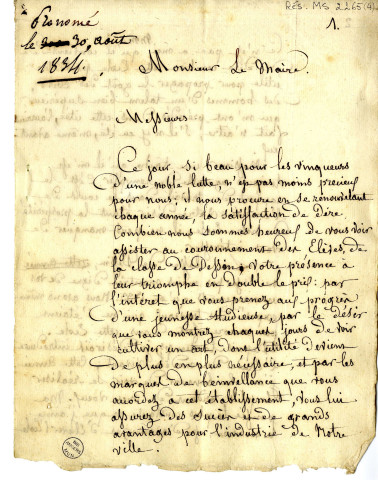 Prononcé
le 30, août
1834.
RÉS. MS 2265(4)
1.
Monsieur Le Maire.
Messieurs
Ce jour si beau pour les vinqueurs
d'une noble lutte, n'est pas moins precieux
pour nous; il nous procure en se renouvelant
chaque année, la satisfaction de dire
Combien nous sommes heureux de vous voir
assister au couronnement des Elèves, de
la classe de Dessin; votre présence à
leur triomphe en double le prix: par
l'intéret que vous prenez aux progrès
d'une jeunesse studieuse, par le désir
que vous montrez chaques jours de voir
cultiver un art, dont l'utilité deviens
de plus en plus nécéssaire, et par les
marques de bienveillance que vous
accordez à cet établissement, vous lui
assurez des succès et de grands
avantages pour l'industrie de Notre
ville.